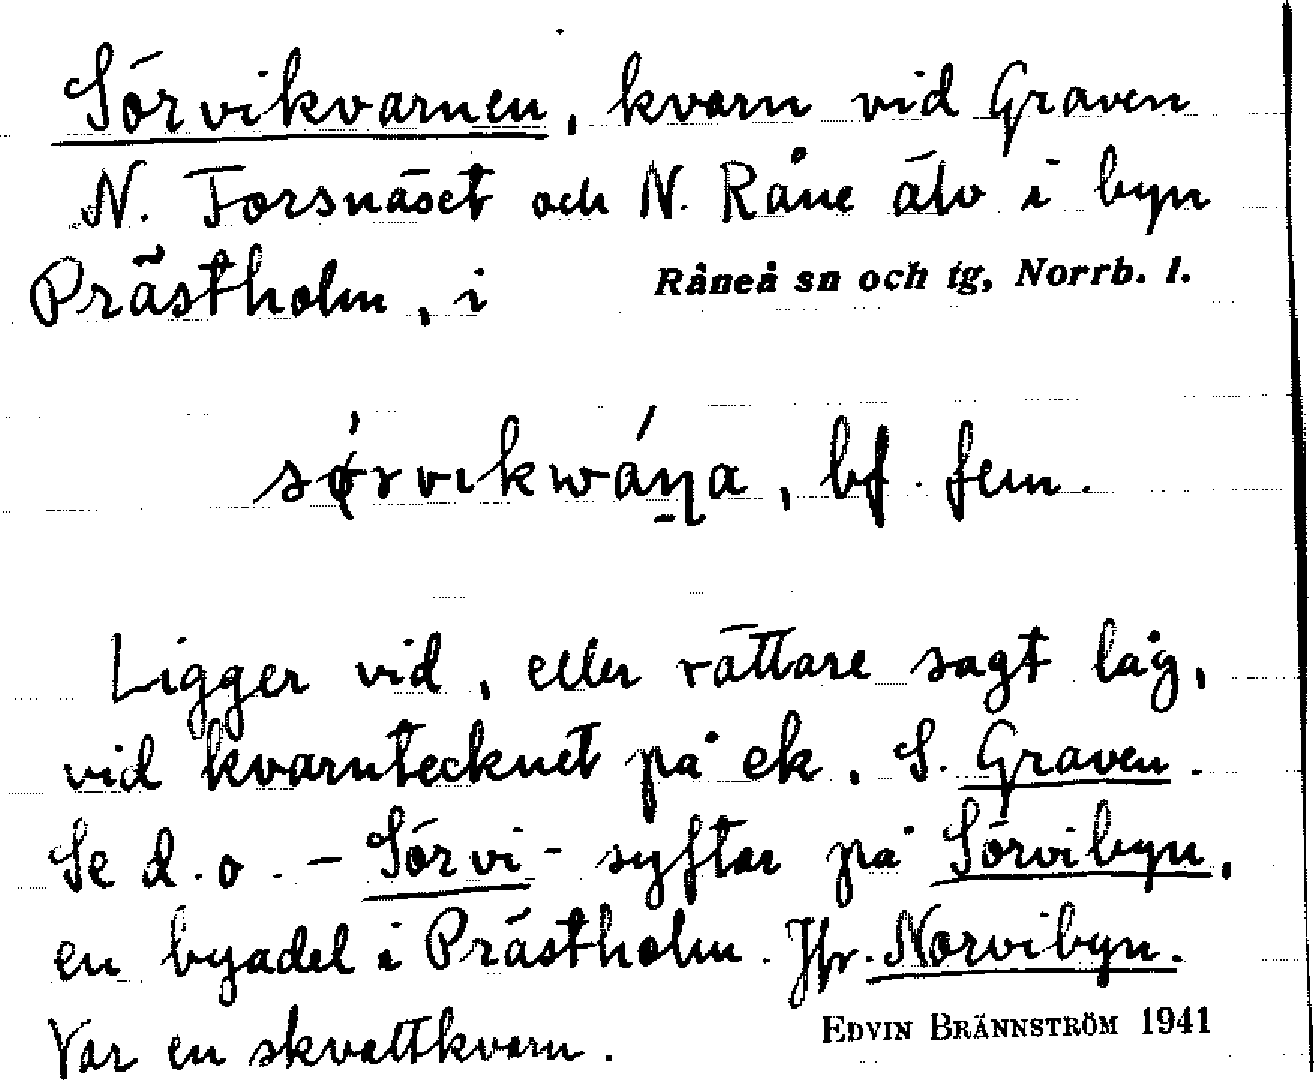 Sörvikvarnen, kvarn vid Graven
N. Forsnäset och N. Råne älv i byn
Prästholm, i Råneå sn och tg, Norrb. l.
bf. fem.
Ligger vid, eller rättare sagt låg,
vid kvarntecknet på ek. S. Graven.
Se d.o. - Sörvi- syftar på Sörvibyn,
en byadel i Prästholm. Jfr. Norvibyn.
Var en skvattkvarn.
EDVIN BRÄNNSTRÖM 1941